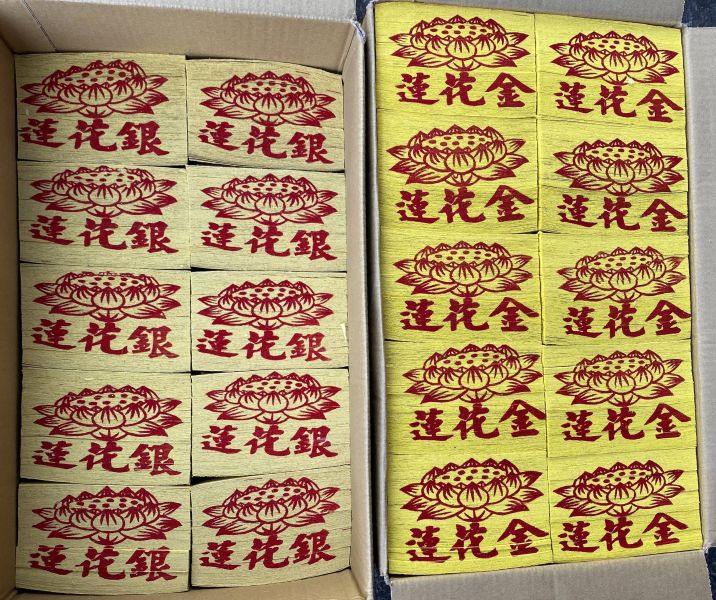 蓮花銀
蓮花銀
蓮花銀
蓮花銀
蓮花銀
蓮花銀
蓮花銀
蓮花銀
蓮花銀
蓮花銀
蓮花金
蓮花金
蓮花金
蓮花金
蓮花金
蓮花金
蓮花金
蓮花金
蓮花金
蓮花金